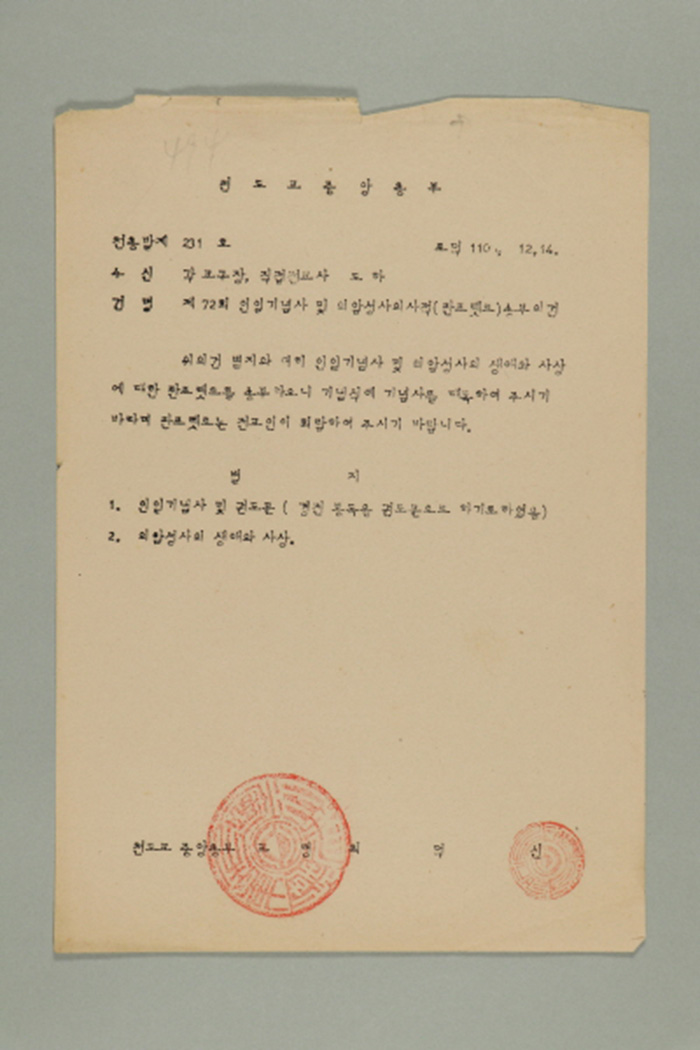 천도교중앙총부
천총발제 231 호
포덕 110. 12.14.
수 신 각 교구장, 직접전교사 도 하
건 명 제 72회 인일기념사 및 의암성사의사적(판프렛트)송부의건
위의건 별지와 여히 인일기념사 및 의암성사의 생애와 사상
에 대한 판프렛트를 송부하오니 기념식에 기념사를 하여 주시기
바라며 판프렛트는 전교인이 하여 주시기 바랍니다.
별 지
1. 인일기념사 및 권도문 ( 경전 봉독은 권도문으로 하기로하였음)
2. 의암성사의 생애와 사상.
천도교 중앙총부 교 령 최 덕 신